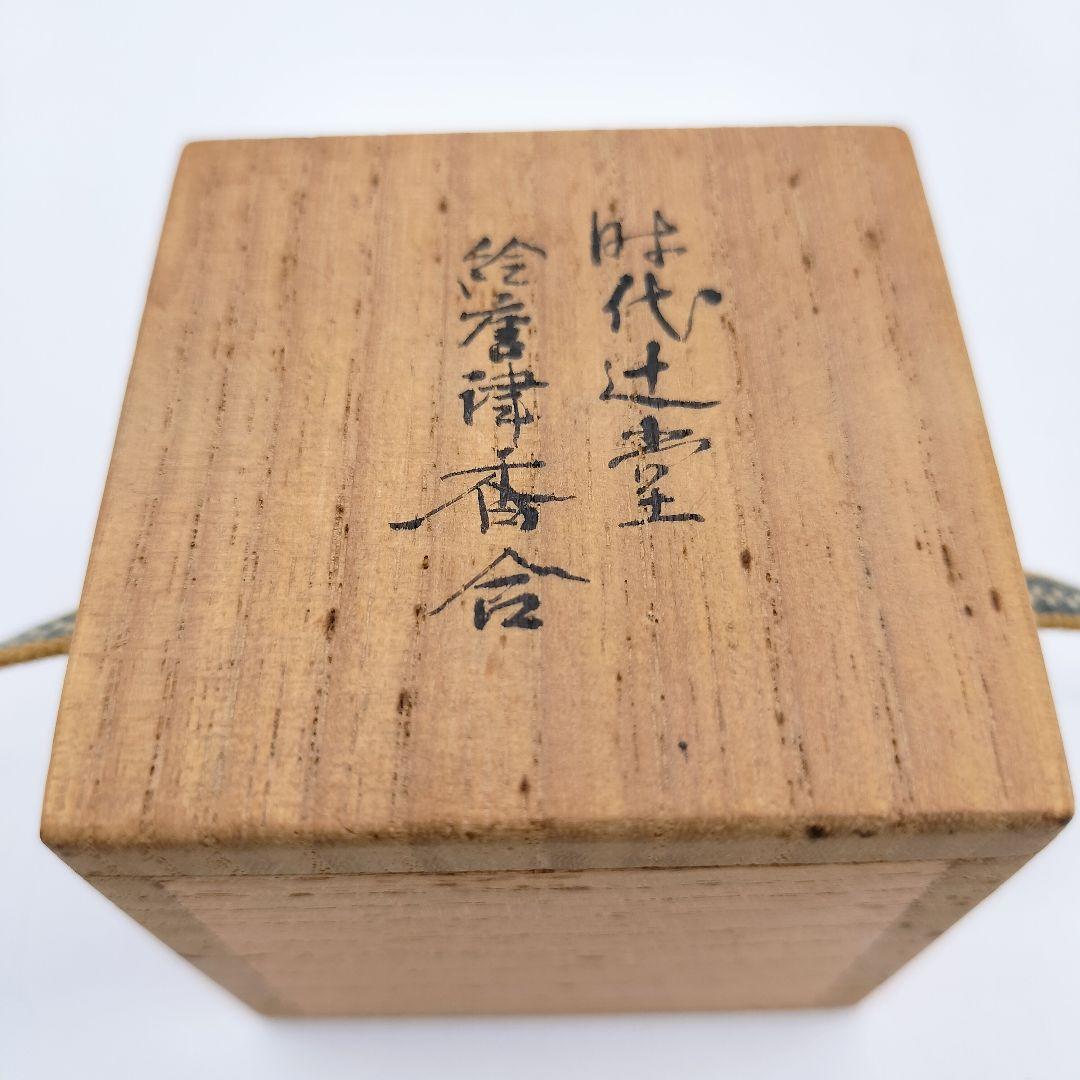 時代辻堂
絵唐津香合